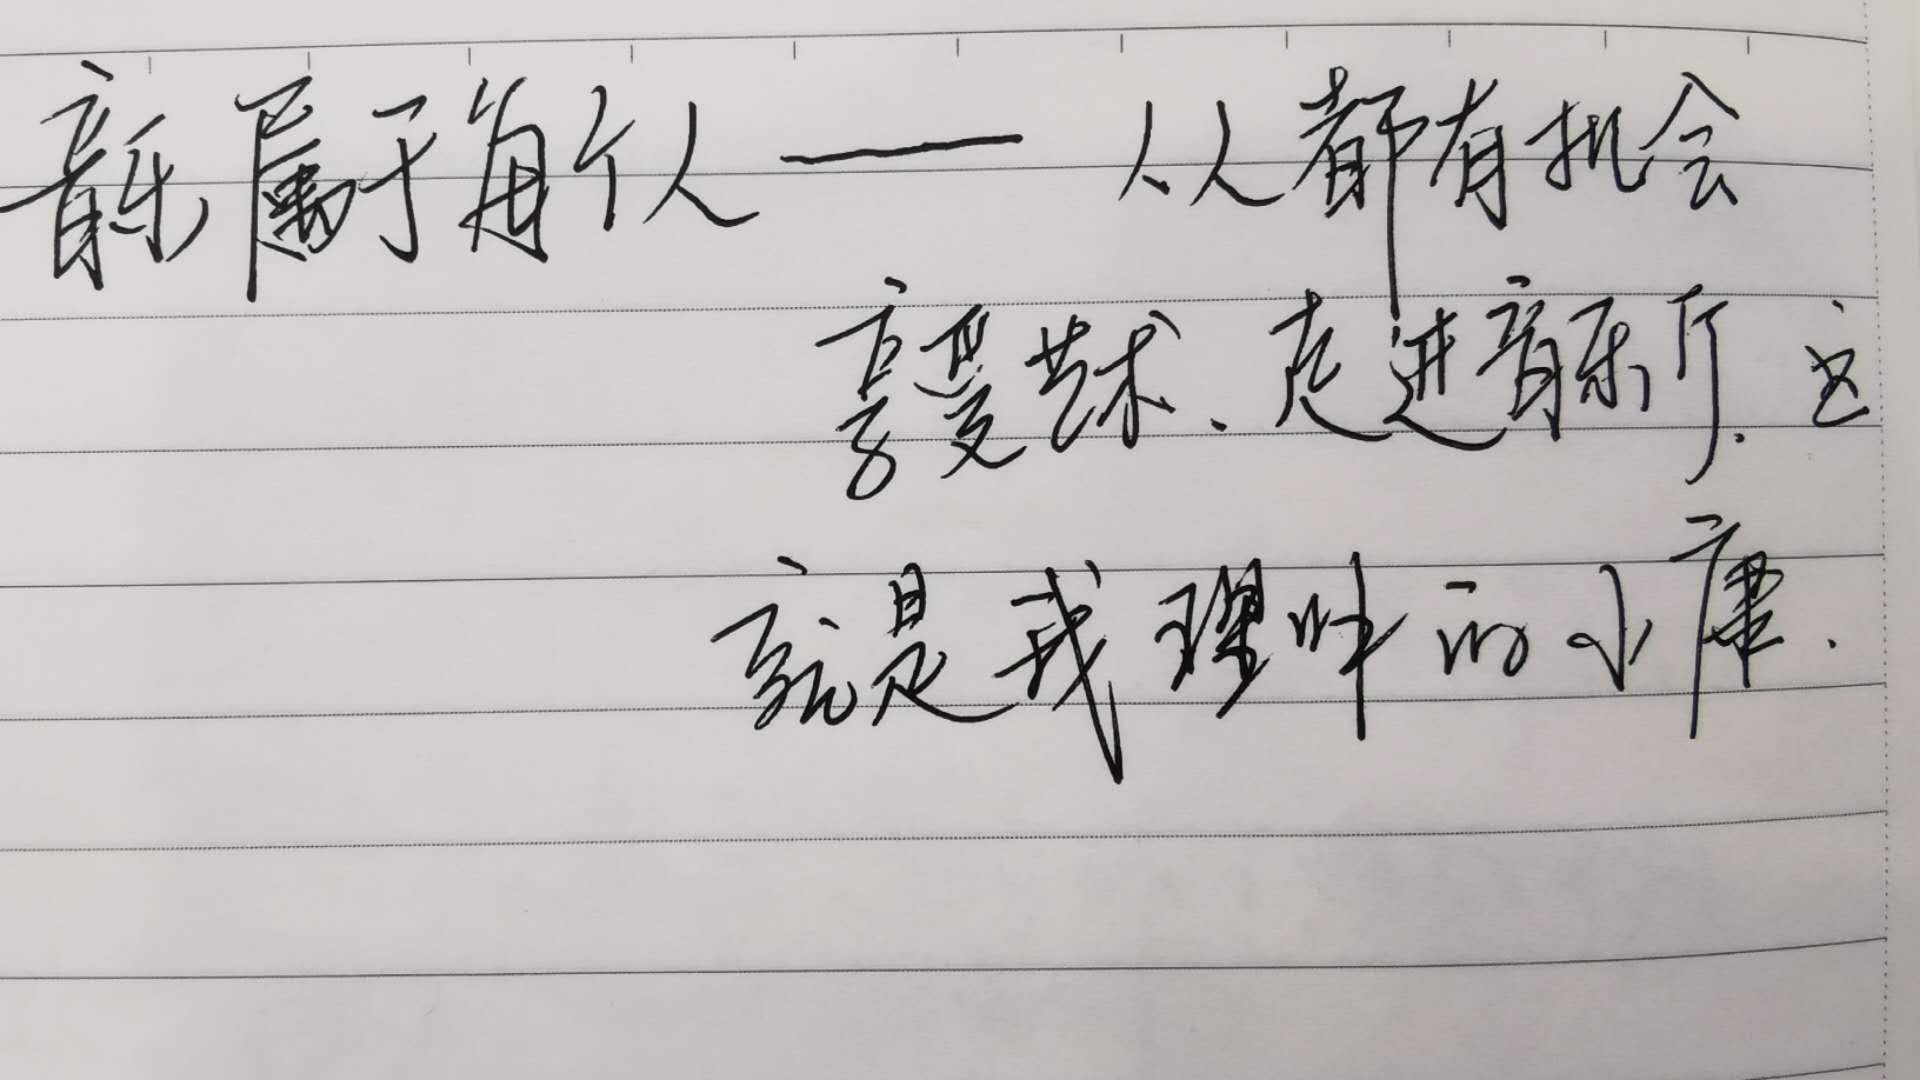 音乐属于每个人——人人都有机会
享受艺术、走进音乐厅.这
就是我理解的小康.